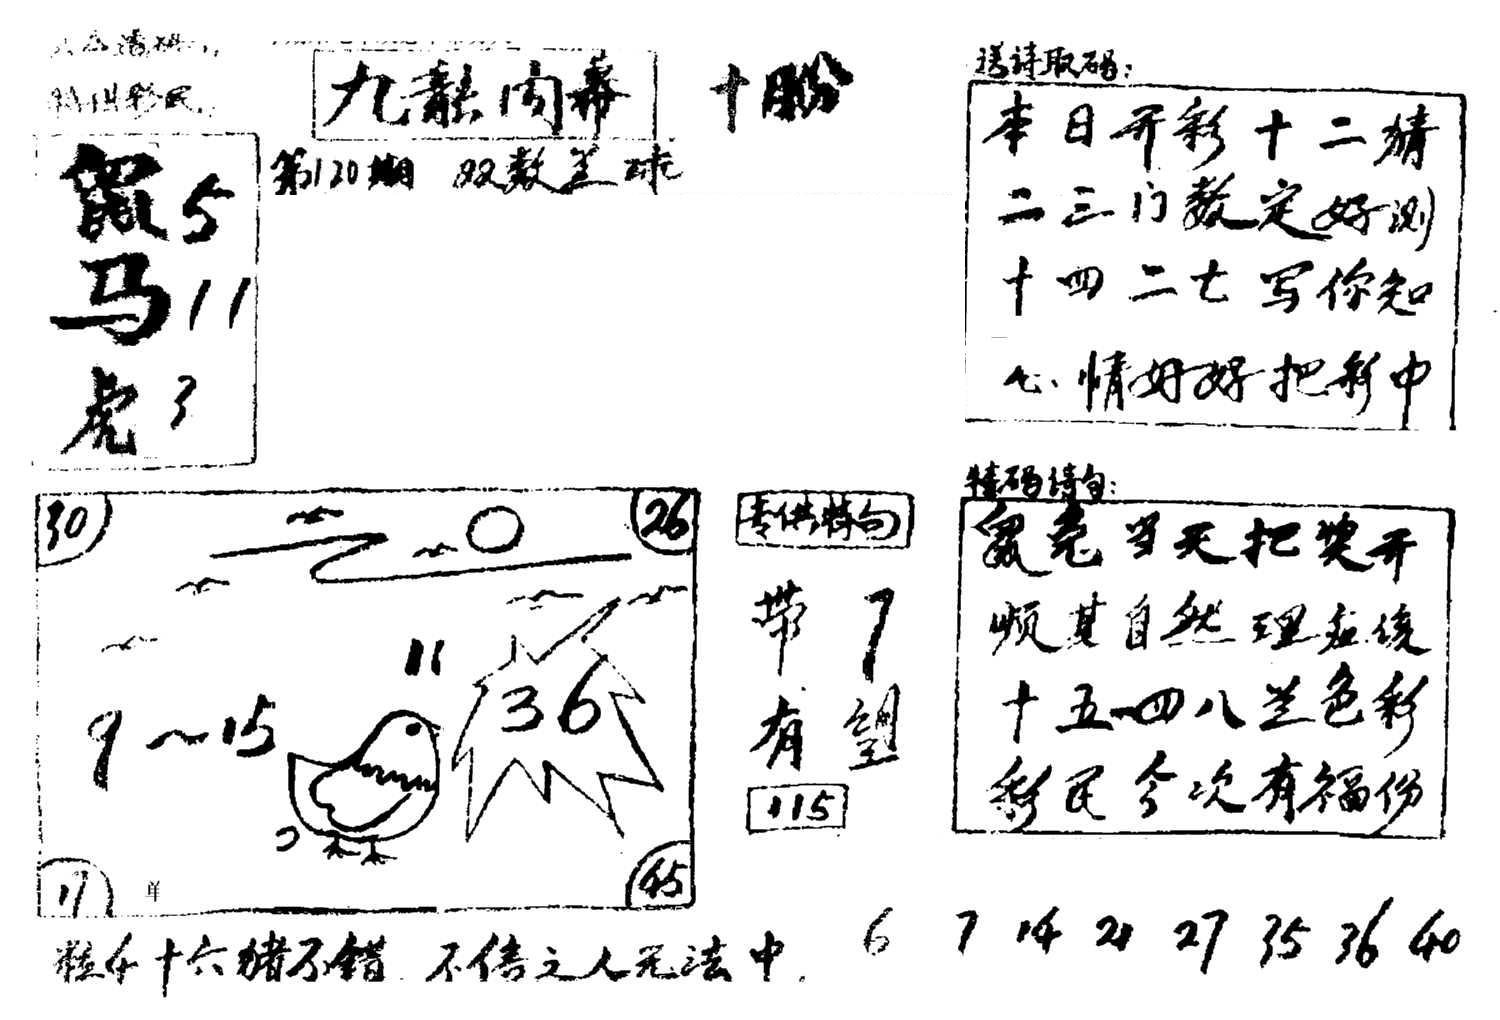 送诗取码:
九龍内幕
十盼
第120期 双数兰球
鼠 5
马 11
虎 3
本日开彩十二猜
二三门数定好测
十四二七写你知
心情好好把彩中
30
26
11
36
9~15
17
单
45
专供特句
带 7
有望
115
特码诗句:
鼠兔当天把奖开
顺其自然理应僥
十五四八兰色彩
彩民今次有福份
6 7 14 21 27 35 36 40
十六猪不错 不信之人无法中.